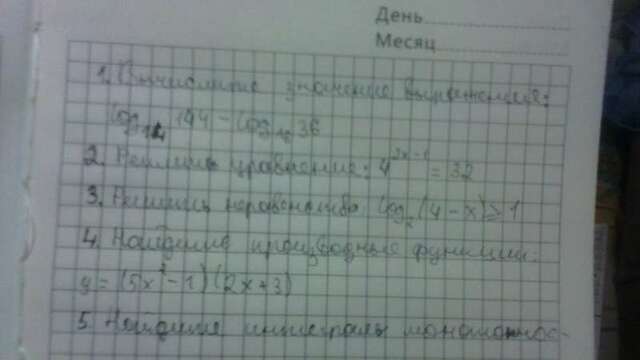 День
Месяц
1. Вычислите значение выражения:
144 - log 36
2. Решить уравнение: 4^2x-1 = 32
3. Решить неравенство: log (4-x) ≥ 1
4. Найдите производные функции:
y = (5x²-1)(2x+3)
5. Найдите интегралы монотоннос-